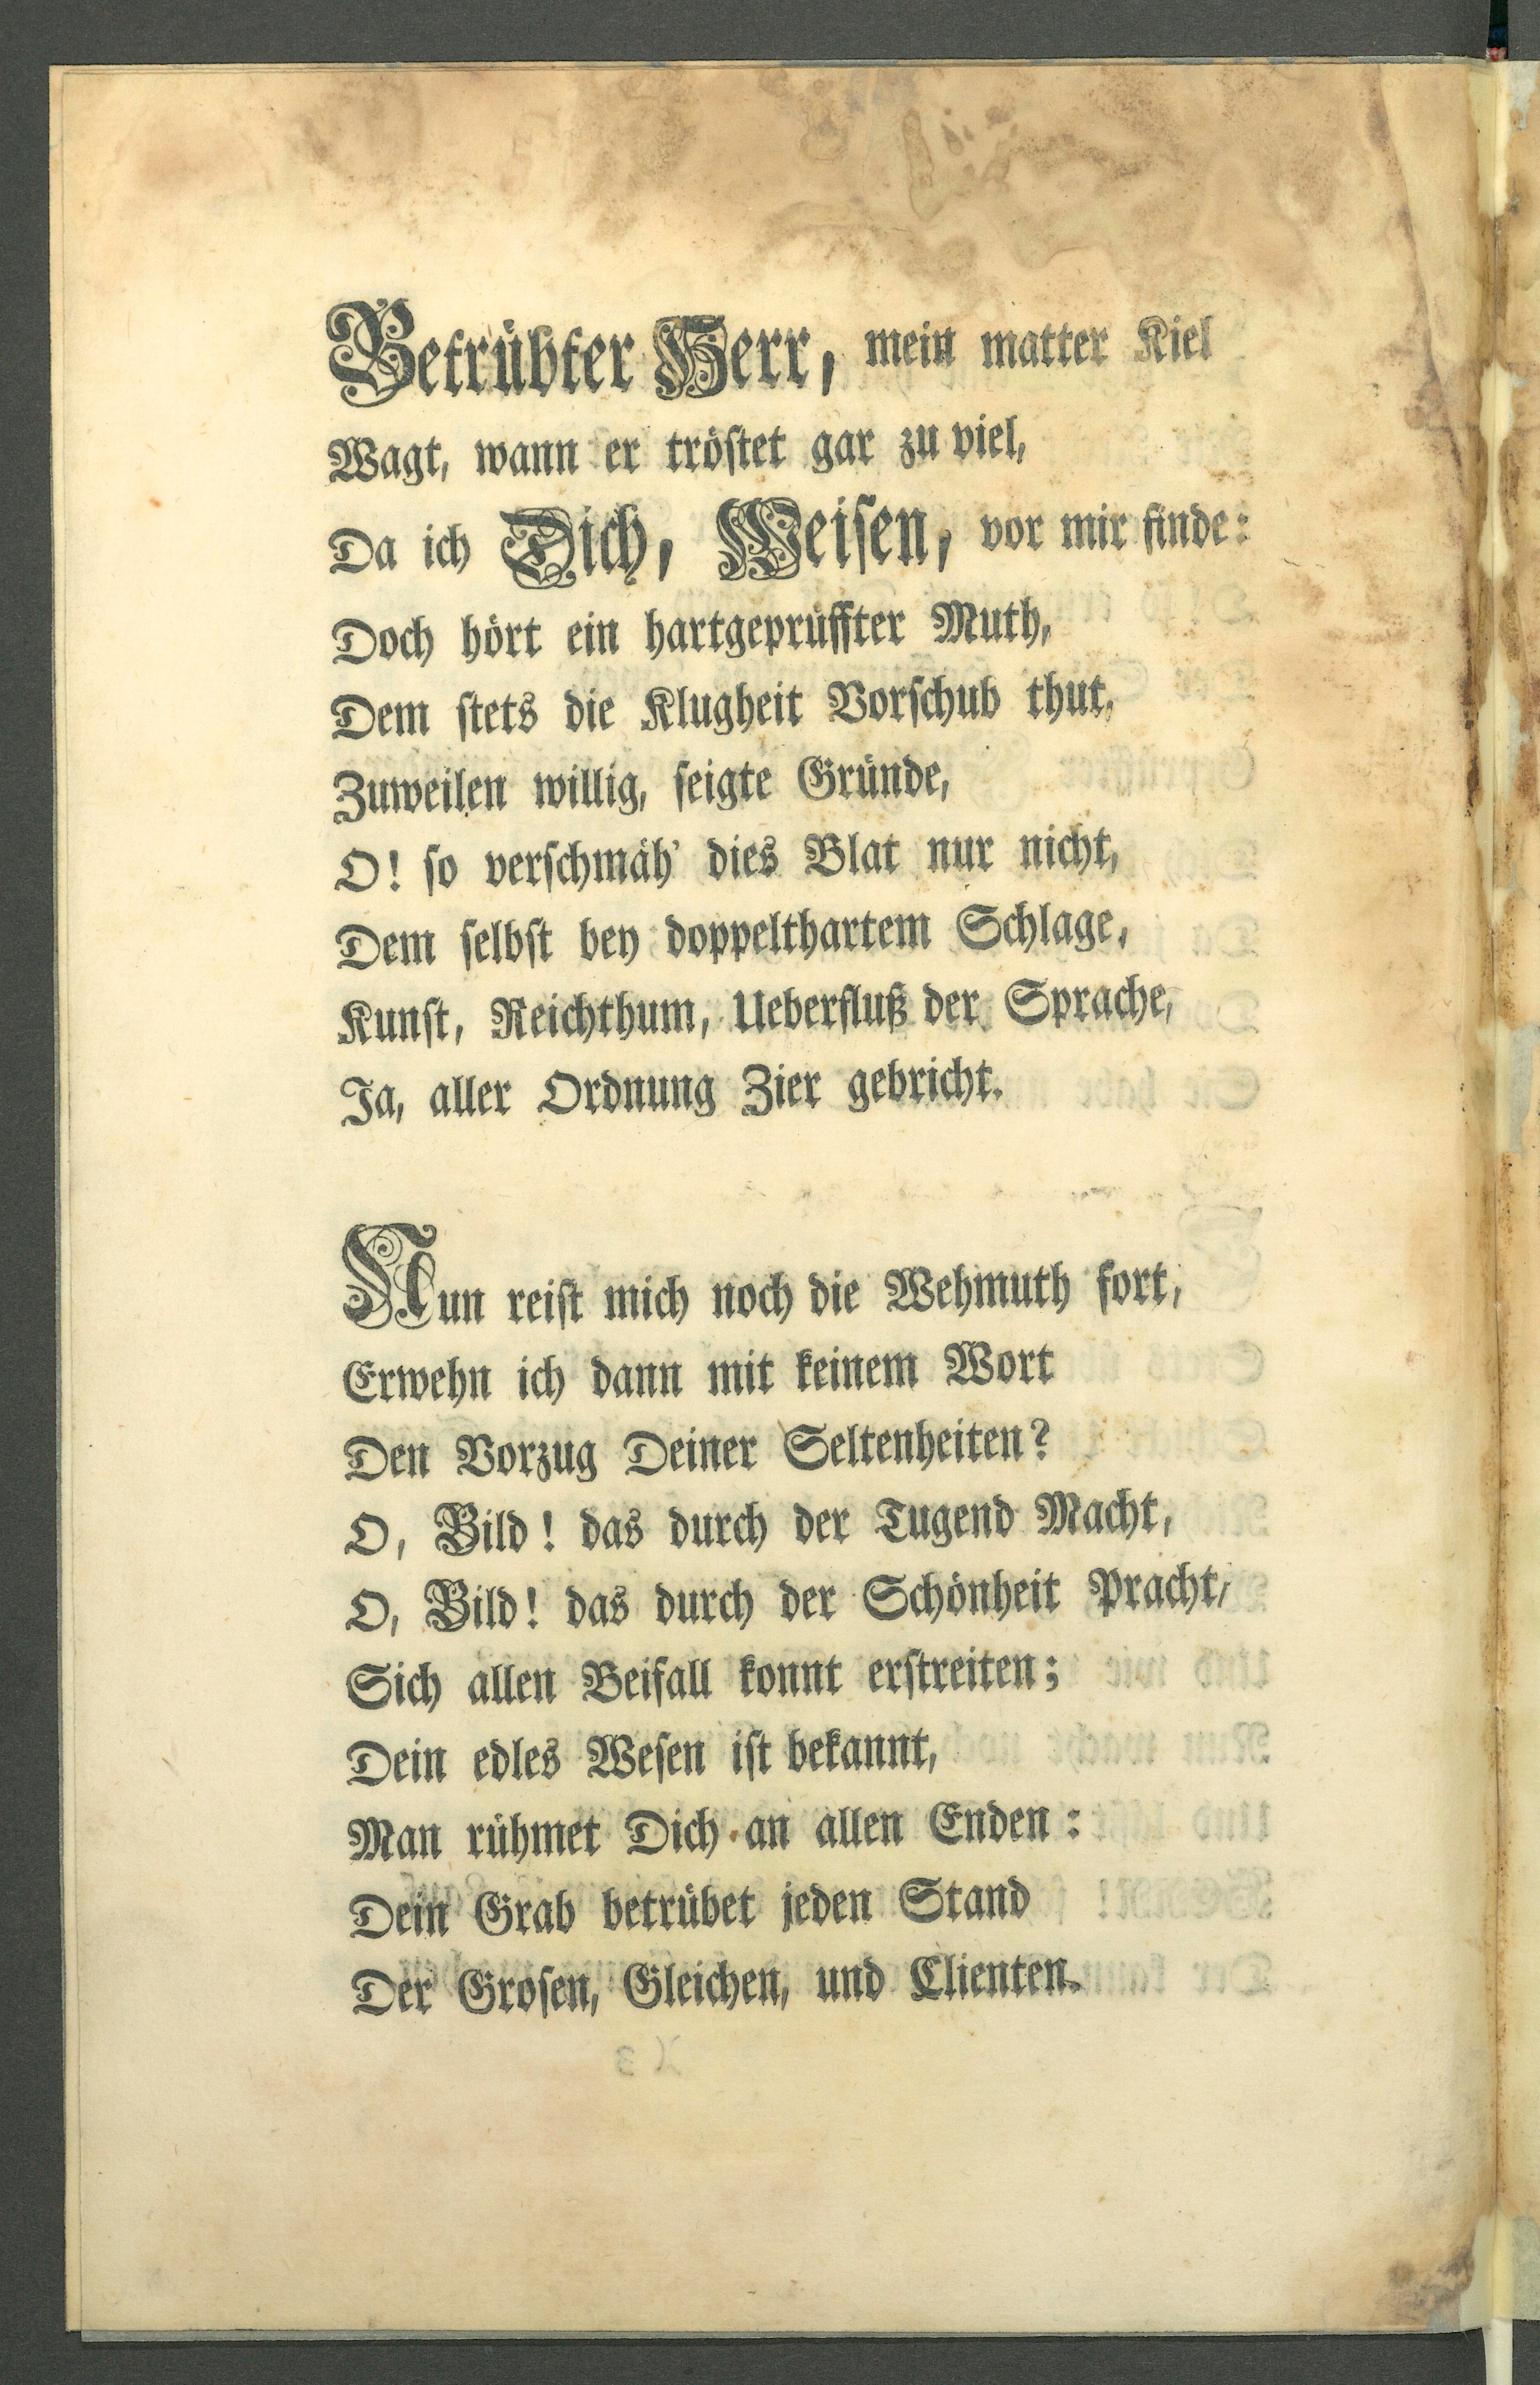 Betrübter Herr, mein matter Kiel
Wagt, wann er tröstet gar zu viel,
Da ich Dich, Weisen, vor mir finde:
Doch hört ein hartgeprüffter Muth,
Dem stets die Klugheit Vorschub thut,
Zuweilen willig, seigte Gründe,
O! so verschmäh' dies Blat nur nicht,
Dem selbst bey doppelthartem Schlage,
Kunst, Reichthum, Ueberfluß der Sprache,
Ja, aller Ordnung Zier gebricht.
Nun reist mich noch die Wehmuth fort,
Erwehn ich dann mit keinem Wort
Den Vorzug Deiner Seltenheiten?
O, Bild! das durch der Tugend Macht,
O, Bild! das durch der Schönheit Pracht,
Sich allen Beifall konnt erstreiten;
Dein edles Wesen ist bekannt,
Man rühmet Dich an allen Enden:
Dein Grab betrübet jeden Stand
Der Grosen, Gleichen, und Clienten.